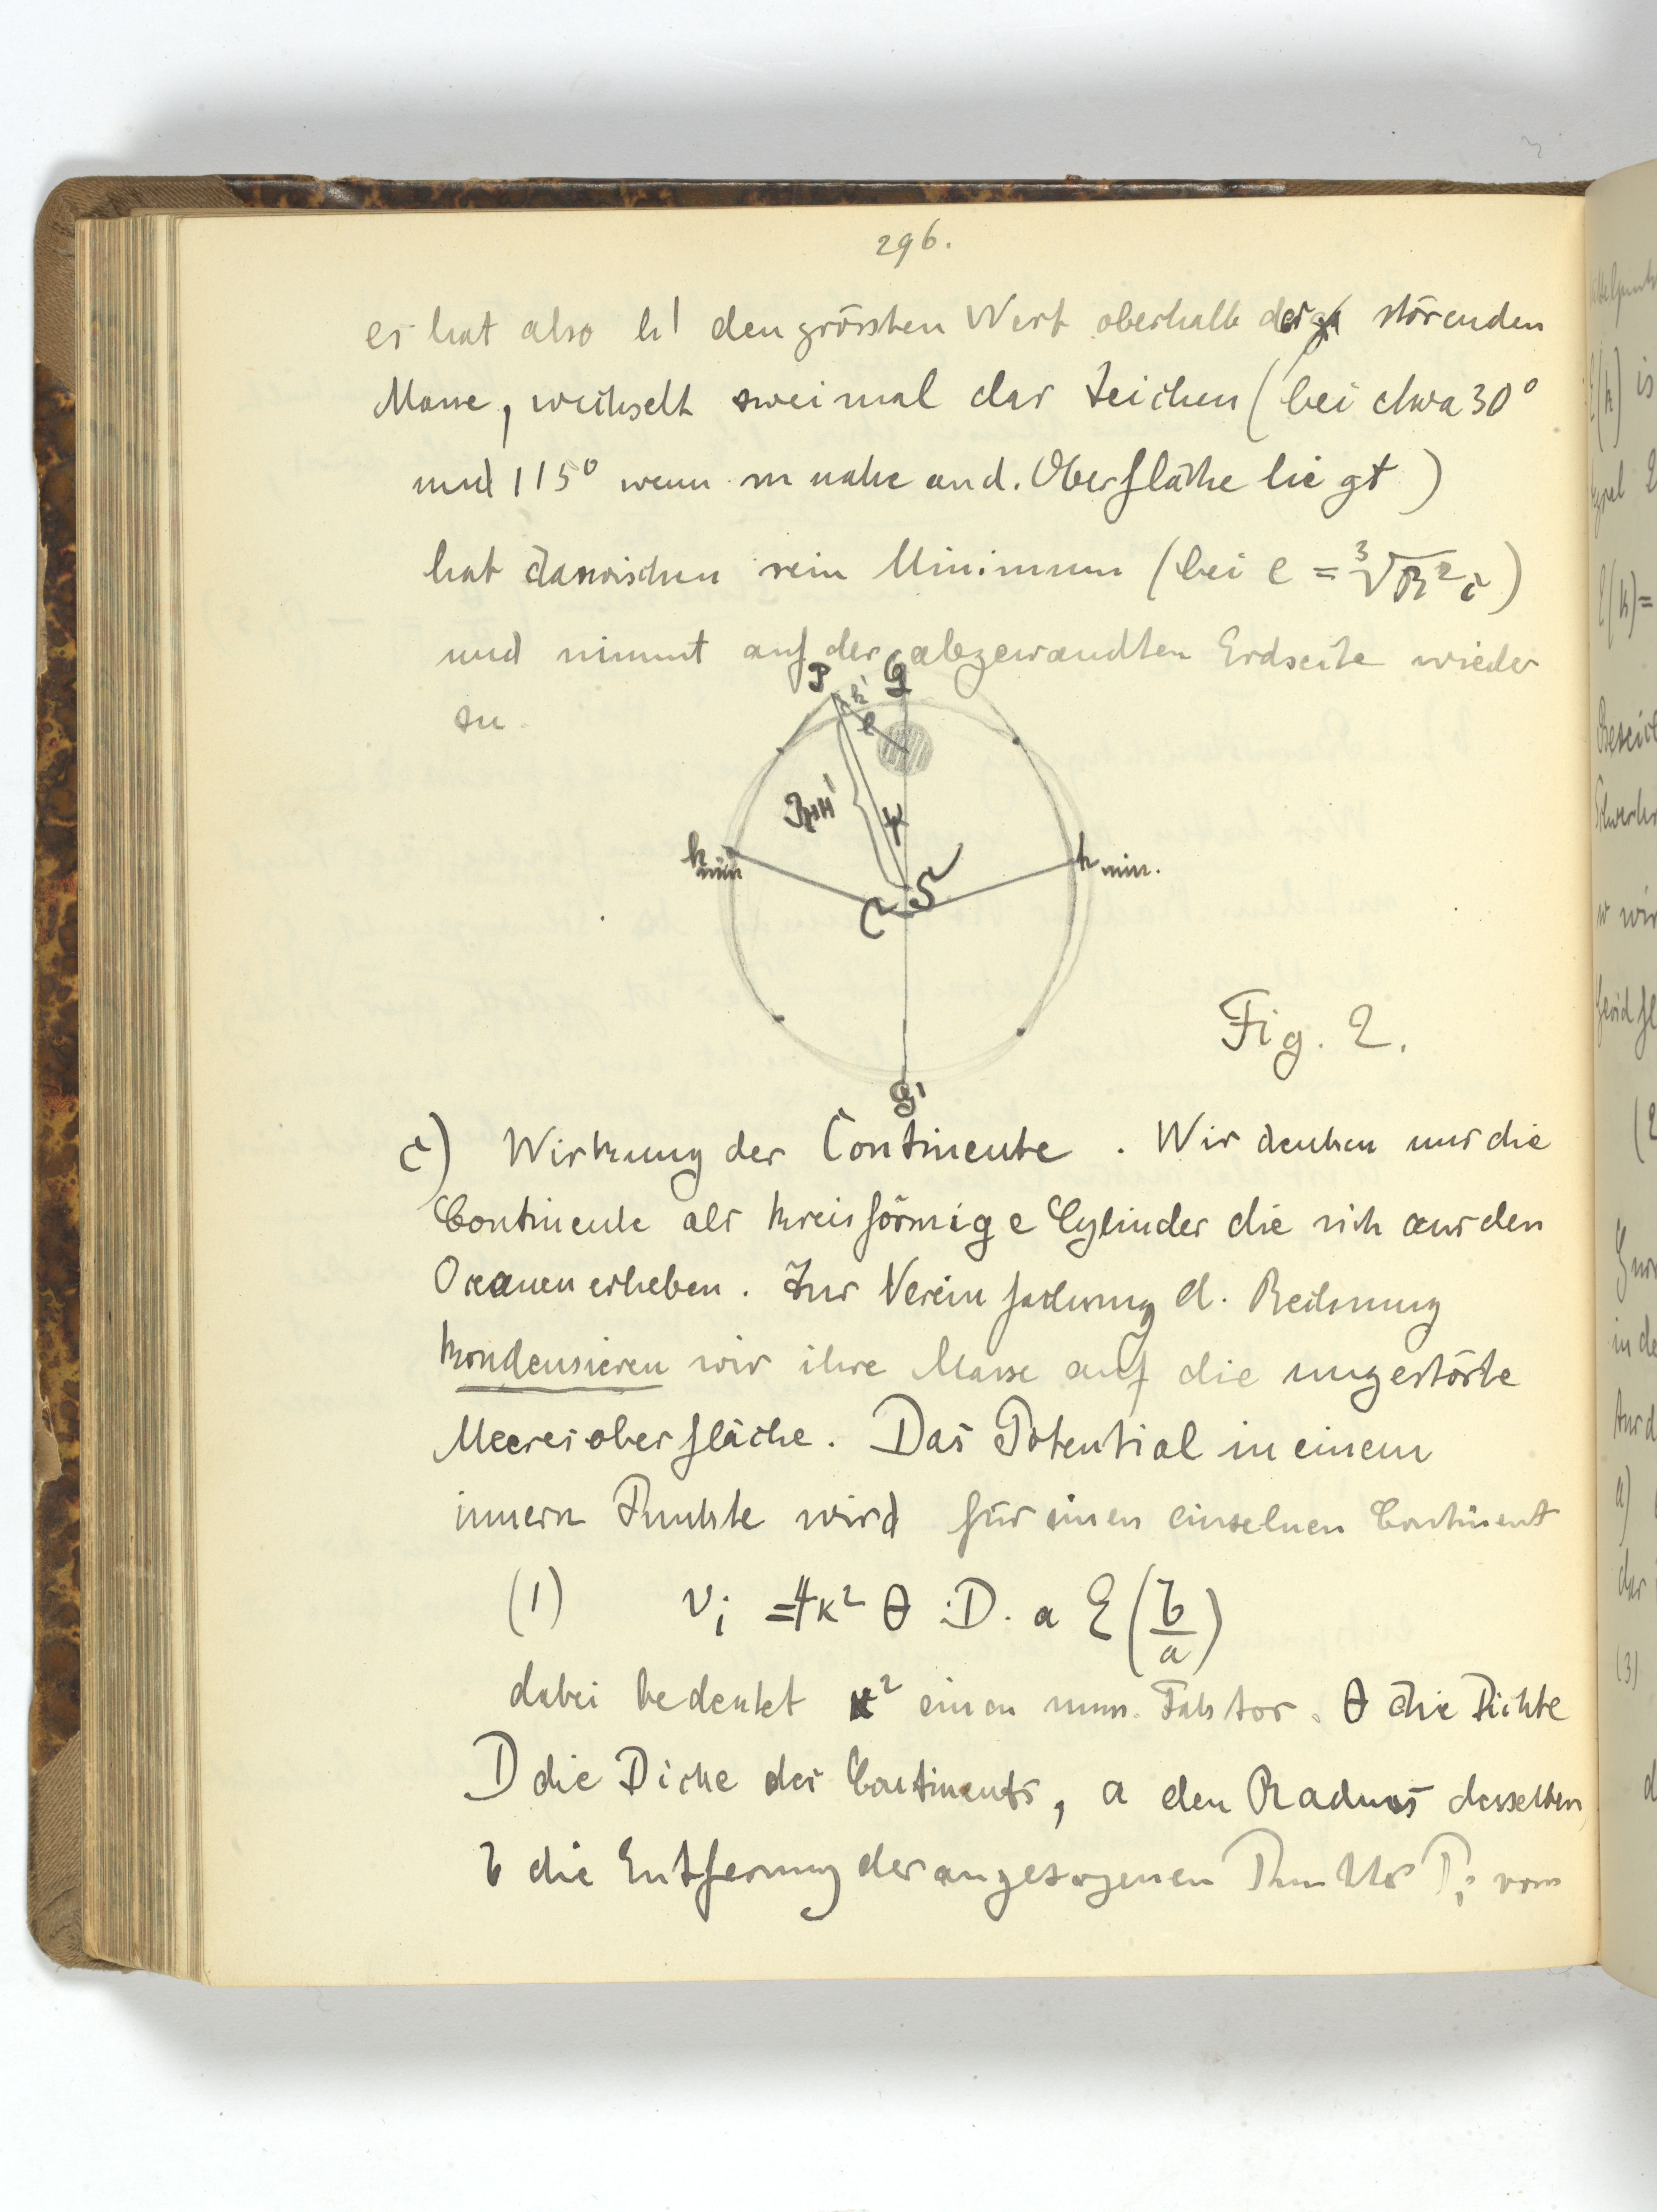 296.
es hat also h' den grössten Wert oberhalb der störenden
Masse, wechselt zweimal das Zeichen (bei etwa 30°
und 115° wenn m nahe an d. Oberfläche liegt)
hat dazwischen sein Minimum (bei e = ∛R²c)
und nimmt auf der abgewandten Erdseite wieder
zu.
P h' Q
e
R+h' ψ
h min h min.
C S
Q'
Fig. 2.
c) Wirkung der Continente. Wir denken uns die
Continente als kreisförmige Cylinder die sich aus den
Ozeanen erheben. Zur Vereinfachung d. Rechnung
kondensieren wir ihre Masse auf die ungestörte
Meeresoberfläche. Das Potential in einem
innern Punkte wird für einen einzelnen Continent
(1) v_i = 4κ² θ . D . a E(b/a)
dabei bedeutet κ² einen num. Faktor. θ die Dichte
D die Dicke des Continents, a den Radius desselben,
b die Entfernung des angezogenen Punktes P_i vom